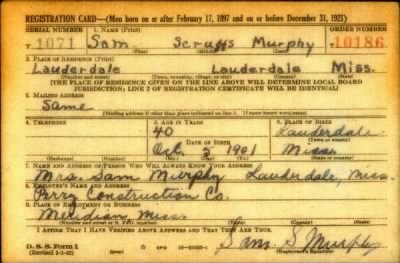 REGISTRATION CARD—(Men born on or after February 17, 1897 and on or before December 31, 1921)
SERIAL NUMBER 1. NAME (Print) ORDER NUMBER
T 1071 Sam Scruggs Murphy T 10186
2. PLACE OF RESIDENCE (Print)
Lauderdale Lauderdale Miss.
(Number and street) (Town, township, village, or city) (County) (State)
[THE PLACE OF RESIDENCE GIVEN ON THE LINE ABOVE WILL DETERMINE LOCAL BOARD
JURISDICTION; LINE 2 OF REGISTRATION CERTIFICATE WILL BE IDENTICAL]
3. MAILING ADDRESS
Same
[Mailing address if other than place indicated on line 2. If same insert word same]
4. TELEPHONE 5. AGE IN YEARS 6. PLACE OF BIRTH
40 Lauderdale
DATE OF BIRTH (Town or county)
Oct 5 1901 Miss.
(Exchange) (Number) (Mo.) (Day) (Yr.) (State or country)
7. NAME AND ADDRESS OF PERSON WHO WILL ALWAYS KNOW YOUR ADDRESS
Mrs. Sam Murphy Lauderdale, Miss.
8. EMPLOYER'S NAME AND ADDRESS
Perry Construction Co.
9. PLACE OF EMPLOYMENT OR BUSINESS
Meridian Miss.
(Number and street or R. F. D. number) (Town) (County) (State)
I AFFIRM THAT I HAVE VERIFIED ABOVE ANSWERS AND THAT THEY ARE TRUE.
Sam S Murphy
D. S. S. Form 1
(Revised 1-1-42) (over) (Registrant's signature)